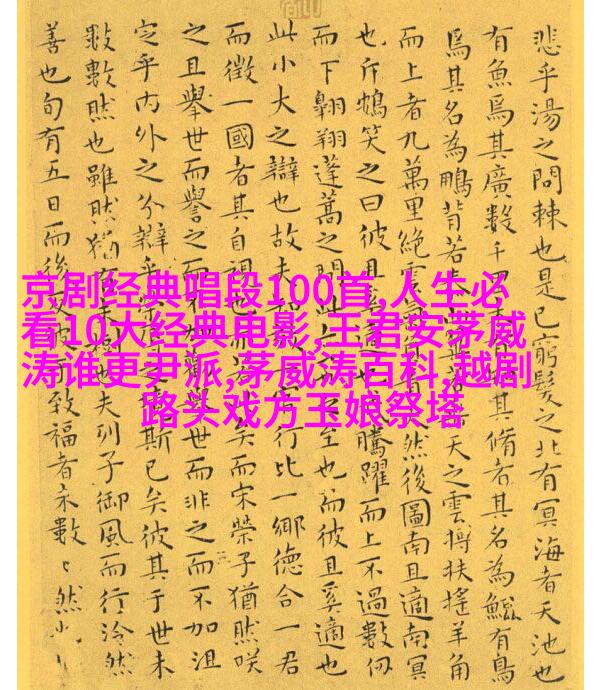 京剧经典唱段100首,人生必
看10大经典电影,王君安茅威
涛谁更尹派,茅威涛百科,越剧
路头戏方玉娘祭塔
悲乎湯之問棘也是已窮髮之北有冥海者天池也
有魚焉其廣數千里其脩者其名為鯤有鳥
焉其名為鵬背若天之雲摶扶搖羊角
而上者九萬里絕雲然後圖南且適南冥
也斥鴳笑之曰彼且騰躍而上不過數仞
而下翱翔蓬蒿之間此至也而彼且奚適也
此小大之辯也故夫行比一鄉德合一君
而徵一國者其自視也矣而宋榮子猶然咲
之且舉世而譽之而不世而非之而不加沮
定乎內外之分辯乎斯已矣彼其于世未
數數然也雖然猶樹也夫列子御風而行泠然
善也旬有五日而後反彼致福者未數〻然